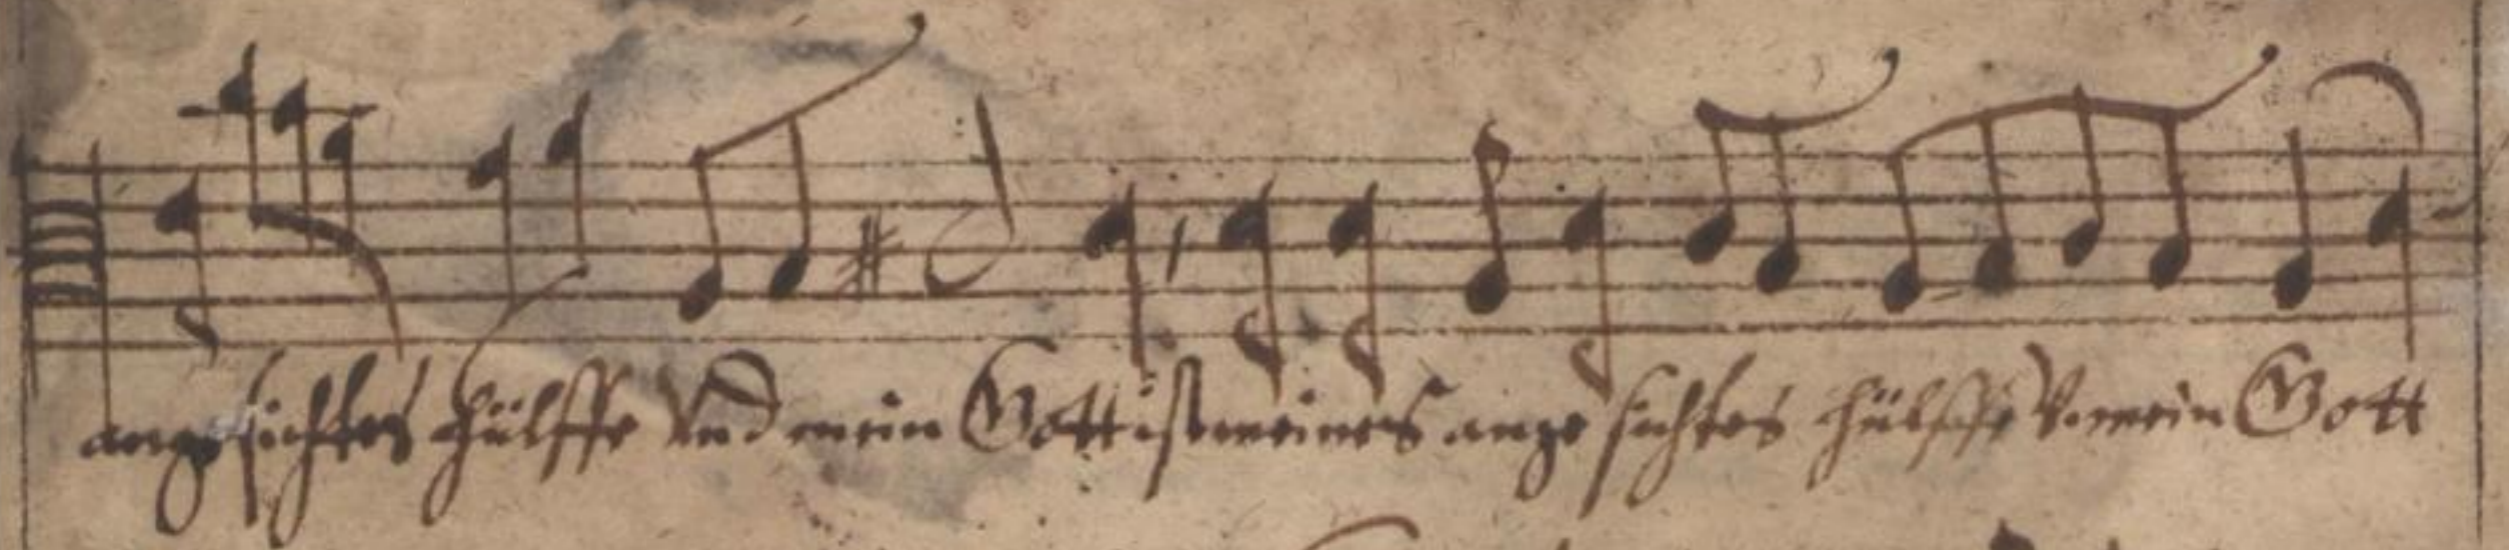 angesichtes hülffe Vnd mein Gott ist meines ange sichtes hülffe V. mein Gott